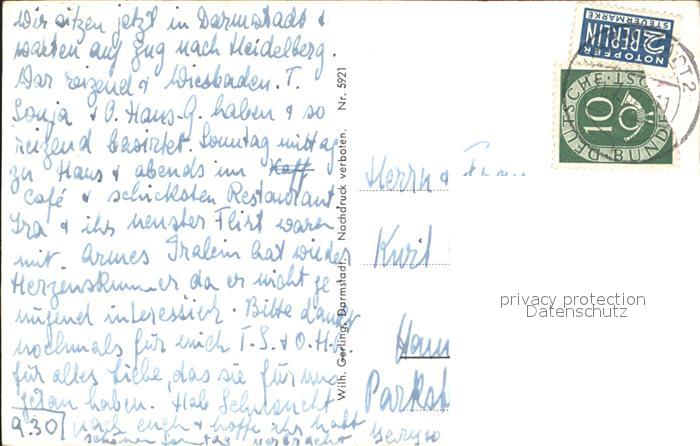 Wir sitzen jetzt in Darmstadt &
warten auf Zug nach Heidelberg.
War reizend & Wiesbaden. T.
Sonja & O. Hans-G. haben & so
reizend bewirtet. Sonntag mittag
zu Haus & abends im Kaff
Café & schicksten Restaurant.
Ira & ihr neuster Flirt waren
mit. Armes Iralein hat wieder
Herzenskummer da er nicht ge
nügend interessiert. Bitte dankt
nochmals für mich T. S. & O. H.G.
für alles Liebe, das sie für uns
getan haben. Hab Sehnsucht
9.30 nach euch & hoffe ihr habt
schönen Sonntag verbracht
Wilh. Gerling, Darmstadt. Nachdruck verboten. Nr. 5921
NOTOPFER
2 BERLIN
STEUERMARKE
DEUTSCHE BUNDESPOST
10
Herrn &
Kurt
Ham
privacy protection
Datenschutz